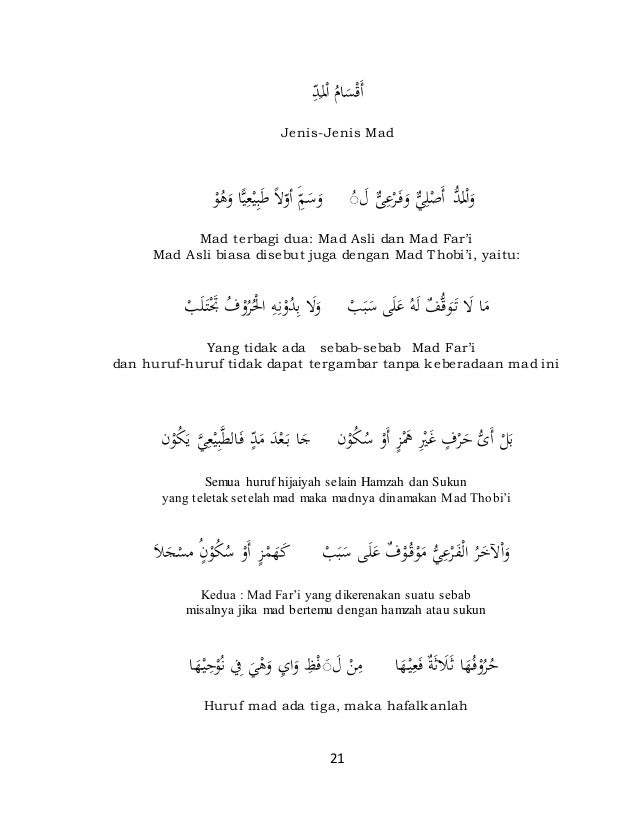 أَقْسَامُ الْمَدِّ
Jenis-Jenis Mad
وَالْمَدُّ أَصْلِيٌّ وَفَرْعِىٌّ لَ◌ُ وَسَمِّ أَوّلاً طَبِيْعِيًّا وَهُوْ
Mad terbagi dua: Mad Asli dan Mad Far’i
Mad Asli biasa disebut juga dengan Mad Thobi’i, yaitu:
مَا لَا تَوَقُّفٌ لَهُ عَلَى سَبَبْ وَلَا بِدُوْنِهِ الْحُرُوْفُ تُجْتَلَبْ
Yang tidak ada sebab-sebab Mad Far’i
dan huruf-huruf tidak dapat tergambar tanpa keberadaan mad ini
بَلْ أَىُّ حَرْفٍ غَيْرِ هَمْزٍ أَوْ سُكُوْن جَا بَعْدَ مَدٍّ فَالطَّبِيْعِيَّ يَكُوْن
Semua huruf hijaiyah selain Hamzah dan Sukun
yang teletak setelah mad maka madnya dinamakan Mad Thobi’i
وَاْلآخَرُ الْفَرْعِيُّ مَوْقُوْفٌ عَلَى سَبَبْ كَهَمْزٍ أَوْ سُكُوْنٍ مسْجَلاَ
Kedua : Mad Far’i yang dikerenakan suatu sebab
misalnya jika mad bertemu dengan hamzah atau sukun
حُرُوْفُهَا ثَلَاثَةٌ فَعِيْهَا مِنْ لَ◌َفْظِ وَايٍ وَهْيَ فِي نُوْحِيْهَا
Huruf mad ada tiga, maka hafalkanlah
21